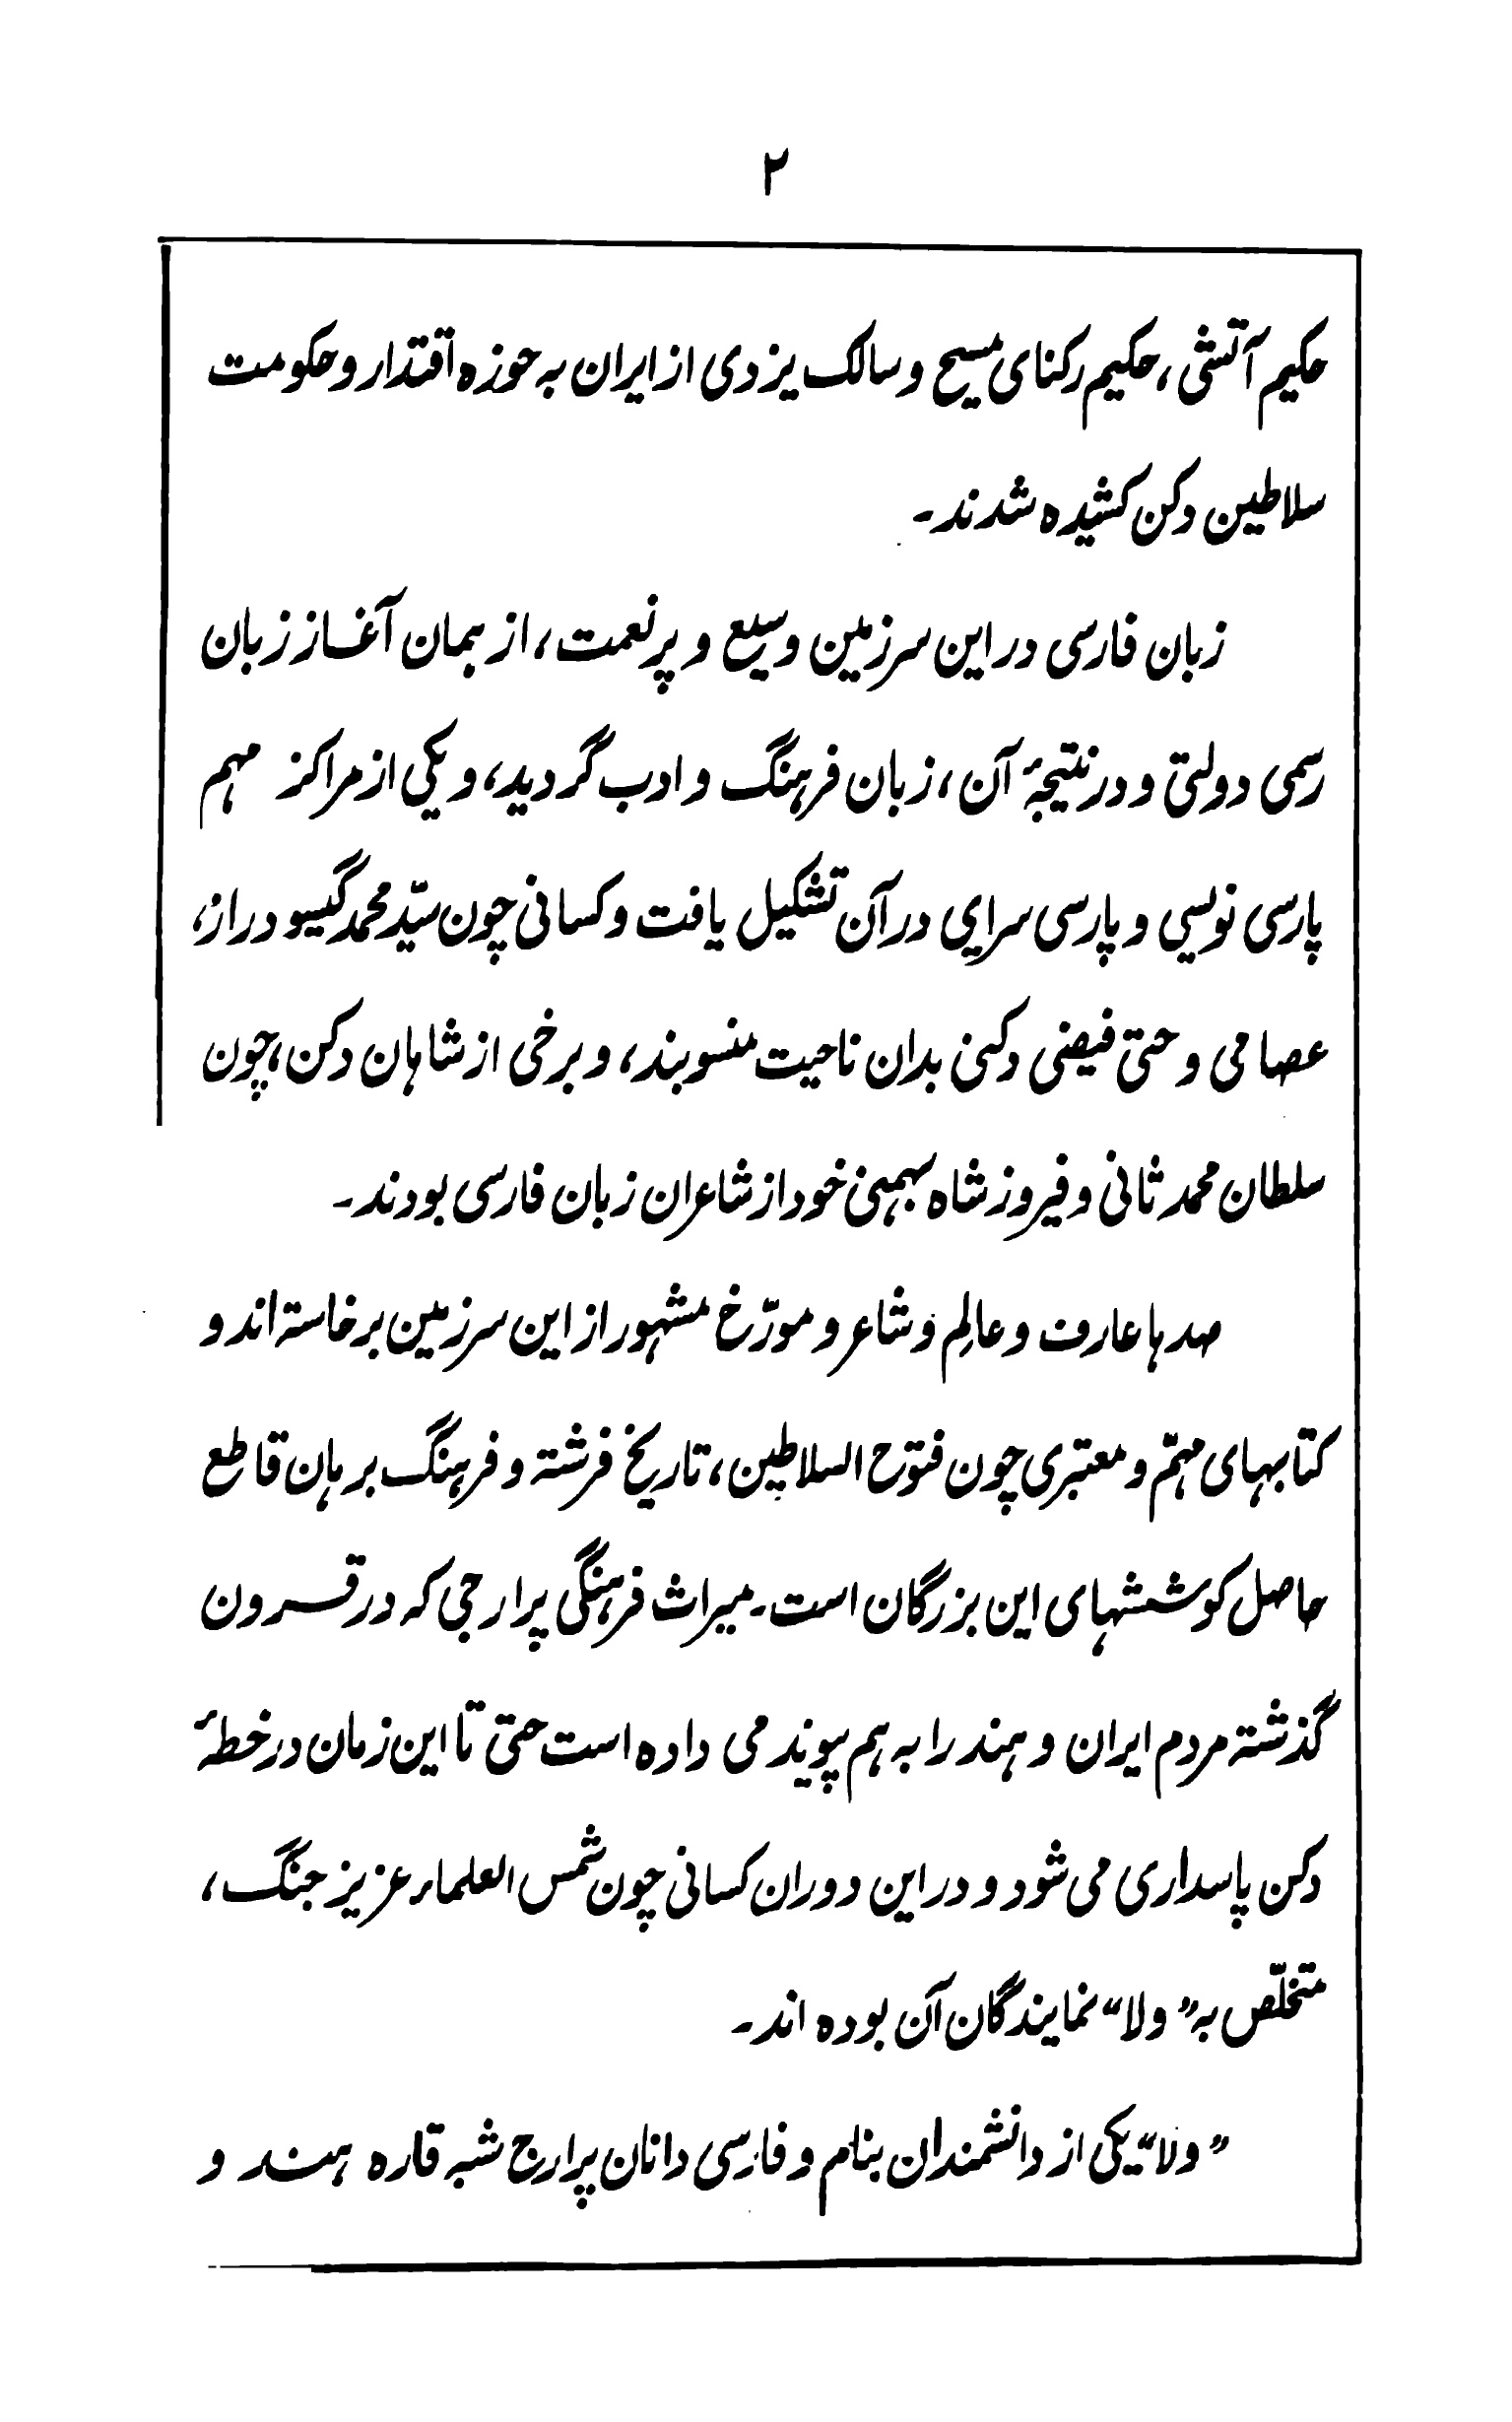 ۲
حکیم آتشی، حکیم رکنای مسیح و سالک یزدی از ایران به حوزه اقتدار و حکومت
سلاطین دکن کشیده شدند۔
زبان فارسی در این سرزمین وسیع و پر نعمت، از همان آغاز زبان
رسمی دولتی و در نتیجۂ آن، زبان فرهنگ و ادب گردید، و یکی از مراکز مهم
پارسی نویسی و پارسی سرایی در آن تشکیل یافت و کسانی چون سیّد محمد گیسو دراز،
عصامی و حتی فیضی دکنی بدان ناحیت منسوبند، و برخی از شاهان دکن، چون
سلطان محمد ثانی و فیروز شاه بهمنی خود از شاعران زبان فارسی بودند۔
صدها عارف و عالِم و شاعر و مورّخ مشهور از این سرزمین برخاسته اند و
کتابهای مهمّ و معتبری چون فتوح السلاطین، تاریخ فرشته و فرهنگ برهان قاطع
حاصل کوششهای این بزرگان است۔ میراث فرهنگی پرارجی که در قرون
گذشته مردم ایران و هند را به هم پیوند می داده است حتی تا این زمان در خطۂ
دکن پاسداری می شود و در این دوران کسانی چون شمس العلماء عزیز جنگ،
متخلّص به "ولا" نمایندگان آن بوده اند۔
"ولا" یکی از دانشمندان بنام و فارسی دانان پرارج شبه قاره هند و